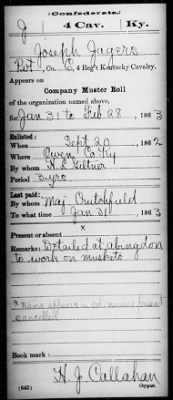 (Confederate.)
J 4 Cav. Ky.
Joseph Jagers
Pvt, Co. C, 4 Reg't Kentucky Cavalry.
Appears on
Company Muster Roll
of the organization named above,
for Jan 31 to Feb 28, 1863
Enlisted:
When Sept 20, 1862
Where Owen Co Ky
By whom H. L. Giltner
Period 3 yrs
Last paid:
By whom Maj. Crutchfield
To what time Jan 31, 1863
Present or absent x
Remarks: Detailed at abingdon
to work on muskets
x Name appears in col.
cancelled
Book mark:
(642) H. J. Callahan
Copyist.